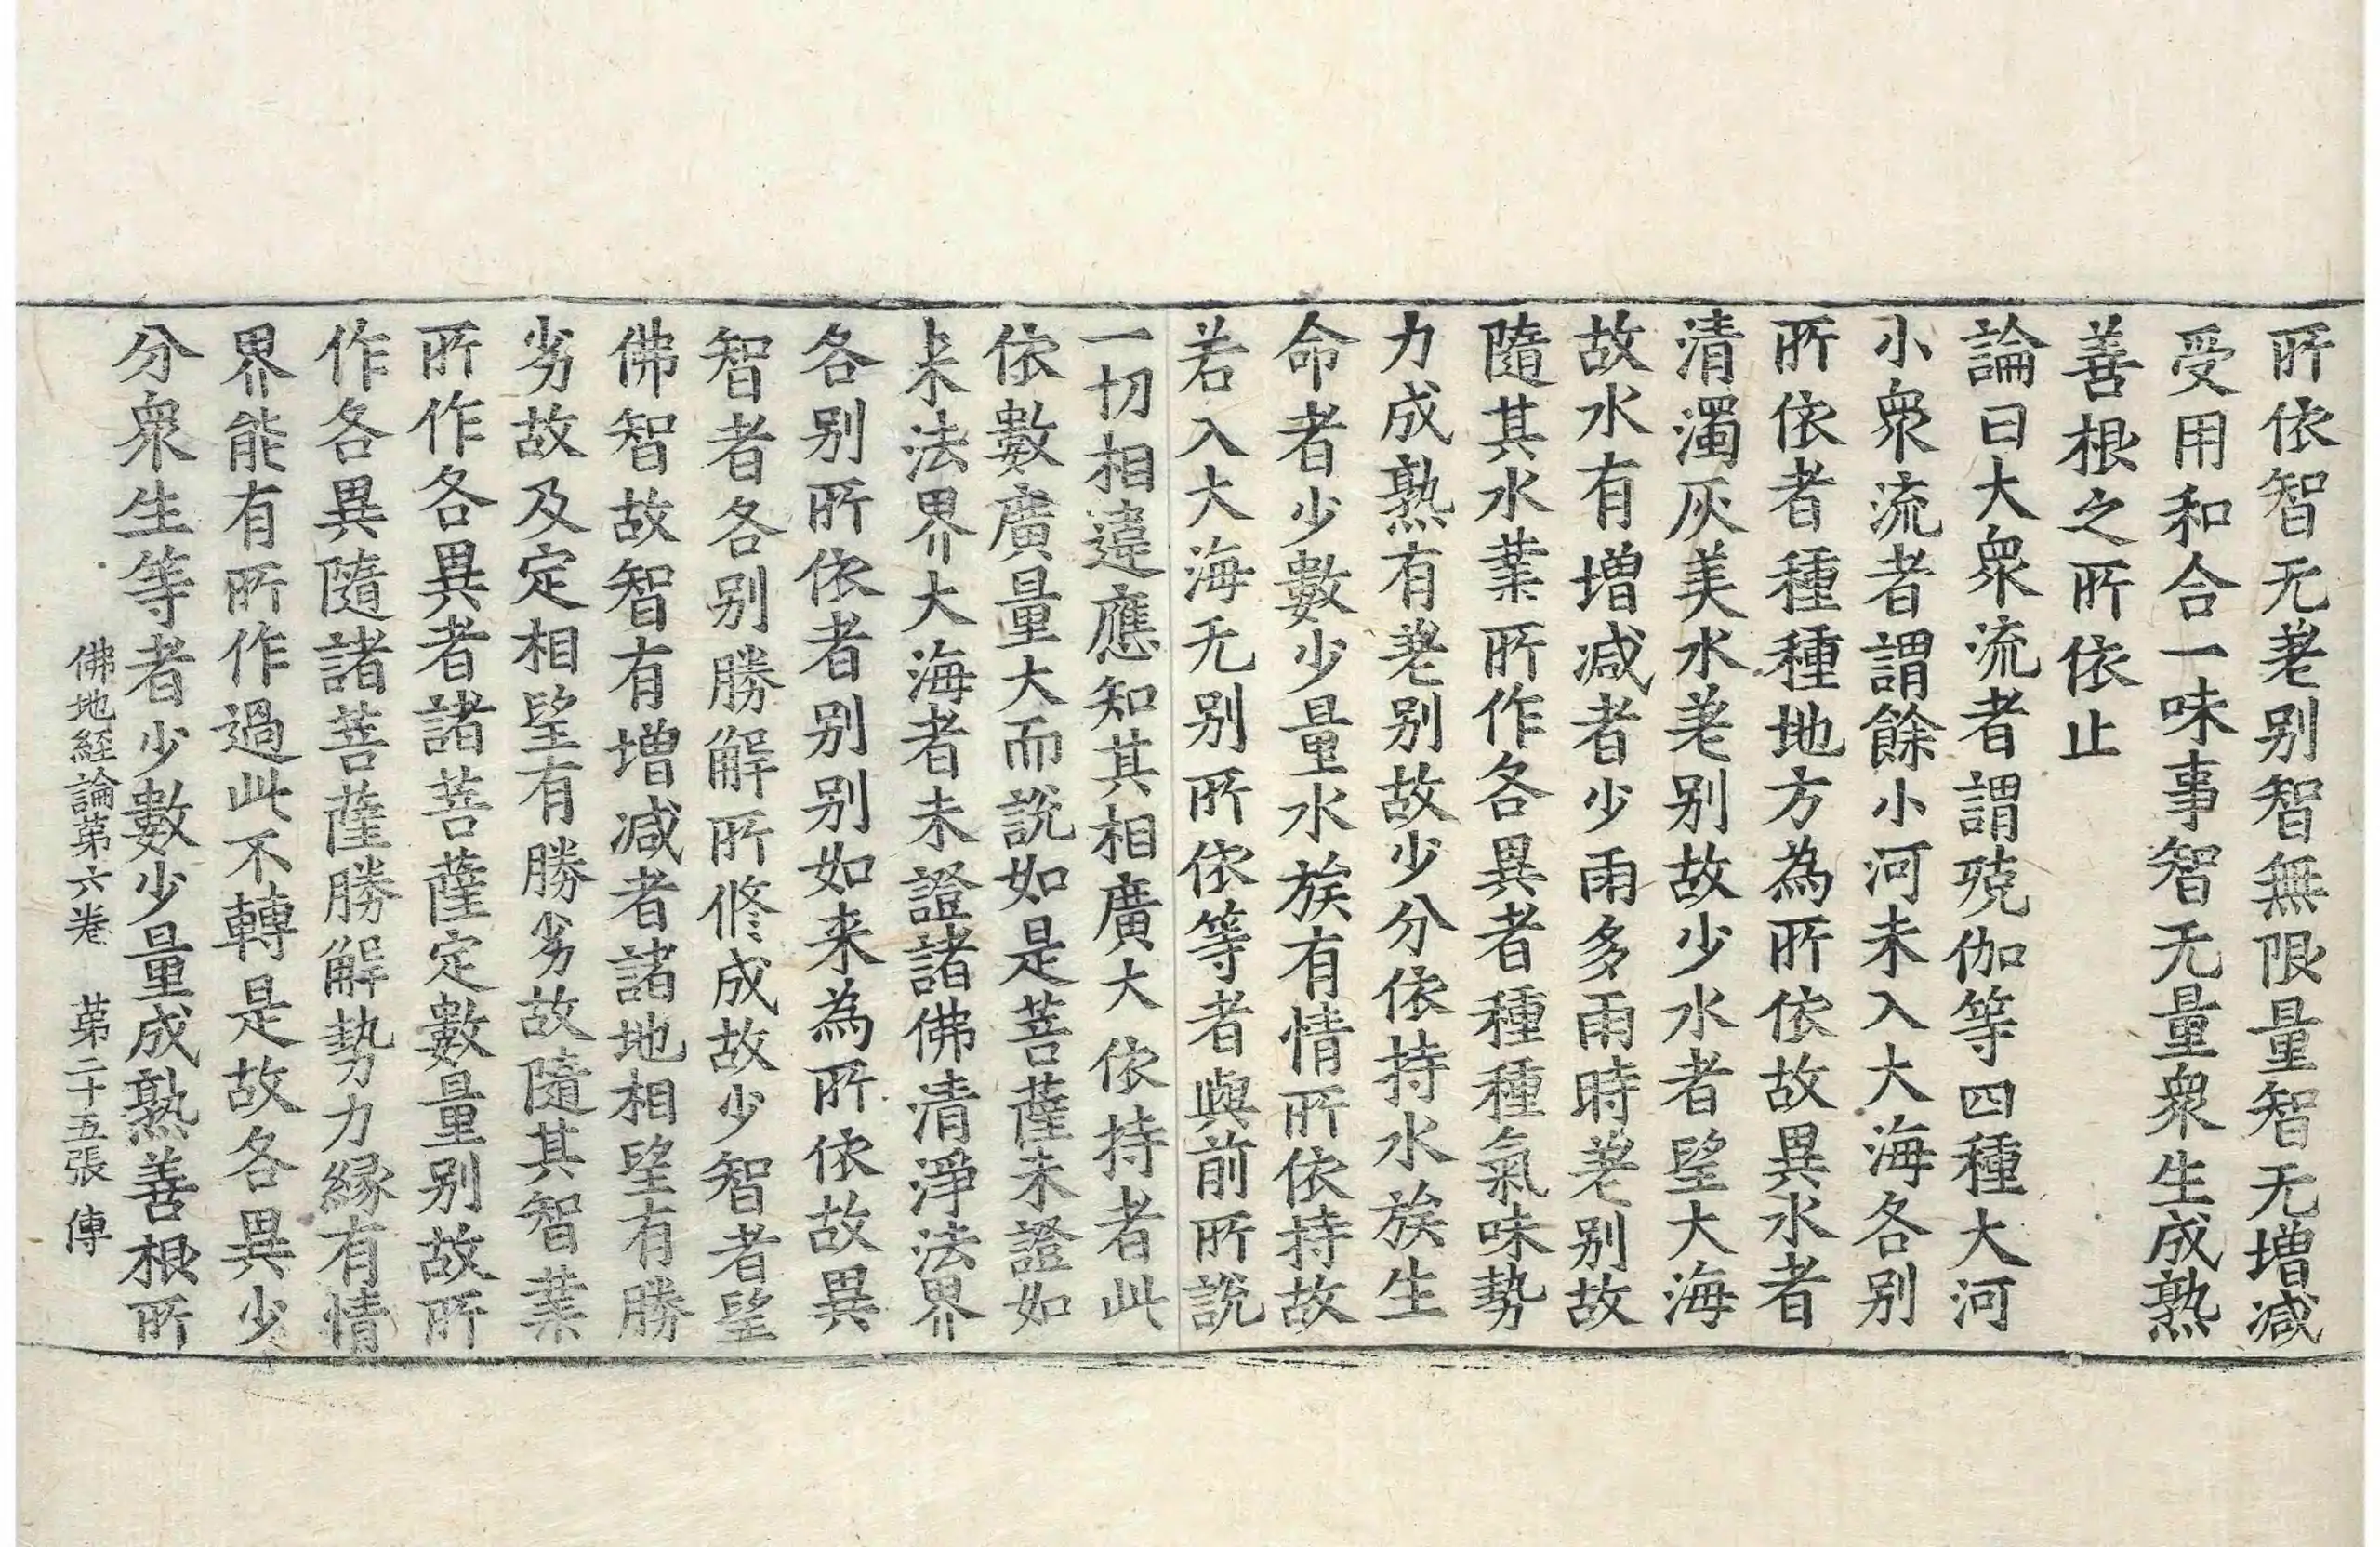 所依智无差别智無限量智无增减
受用和合一味事智无量衆生成熟
善根之所依止
論曰大衆流者謂殑伽等四種大河
小衆流者謂餘小河未入大海各别
所依者種種地方為所依故異水者
清濁灰美水差别故少水者望大海
故水有增减者少雨多雨時差别故
隨其水業所作各異者種種氣味勢
力成熟有差别故少分依持水族生
命者少數少量水族有情所依持故
若入大海无别所依等者與前所說
一切相違應知其相廣大依持者此
依數廣量大而說如是菩薩未證如
来法界大海者未證諸佛清淨法界
各别所依者别别如来為所依故異
智者各别勝解所修成故少智者望
佛智故智有增减者諸地相望有勝
劣故及定相望有勝劣故隨其智業
所作各異者諸菩薩定數量别故所
作各異隨諸菩薩勝解勢力緣有情
界能有所作過此不轉是故各異少
分衆生等者少數少量成熟善根所
佛地経論第六卷 第二十五張 傳